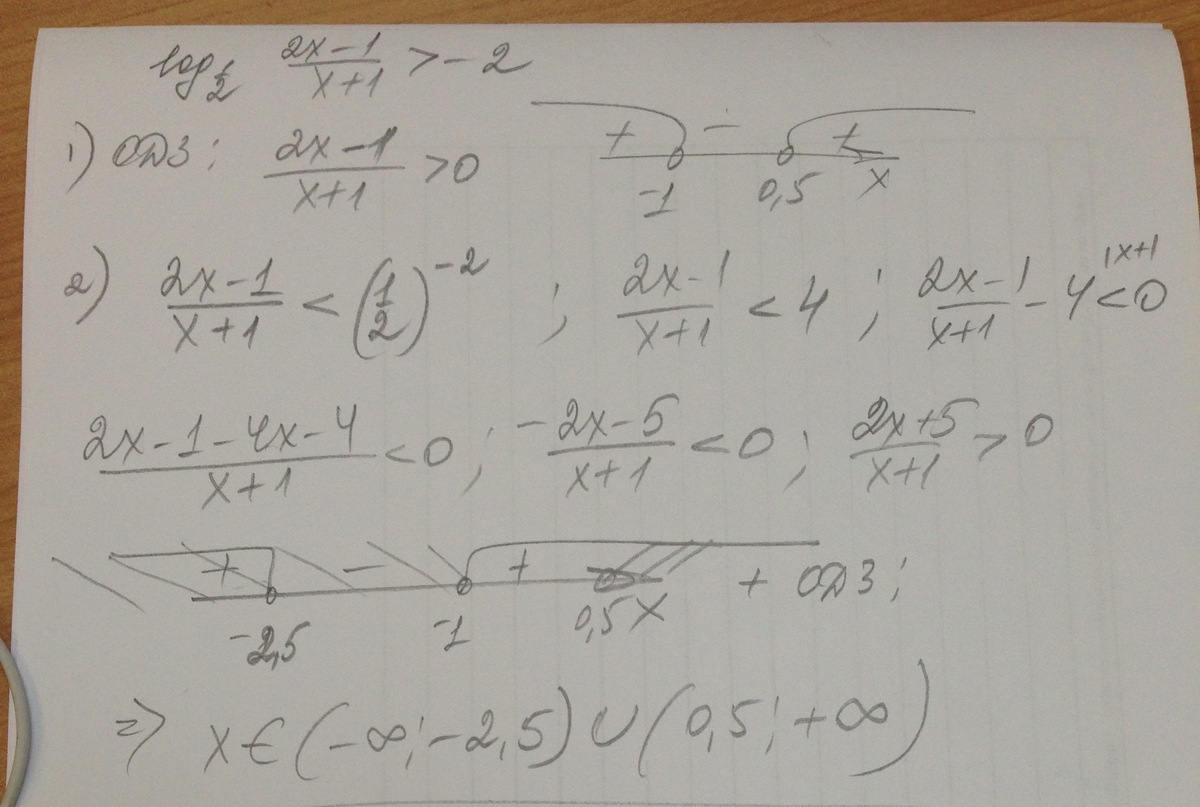 log_{1/2} \frac{2x-1}{x+1} > -2
1) ОДЗ: \frac{2x-1}{x+1} > 0 + - + -1 0,5 x
2) \frac{2x-1}{x+1} < \left(\frac{1}{2}\right)^{-2} ; \frac{2x-1}{x+1} < 4 ; \frac{2x-1}{x+1} - 4^{|x+1} < 0
\frac{2x-1-4x-4}{x+1} < 0 ; \frac{-2x-5}{x+1} < 0 ; \frac{2x+5}{x+1} > 0
+ - + + ОДЗ;
-2,5 -1 0,5 x
=> x ∈ (-∞; -2,5) ∪ (0,5; +∞)